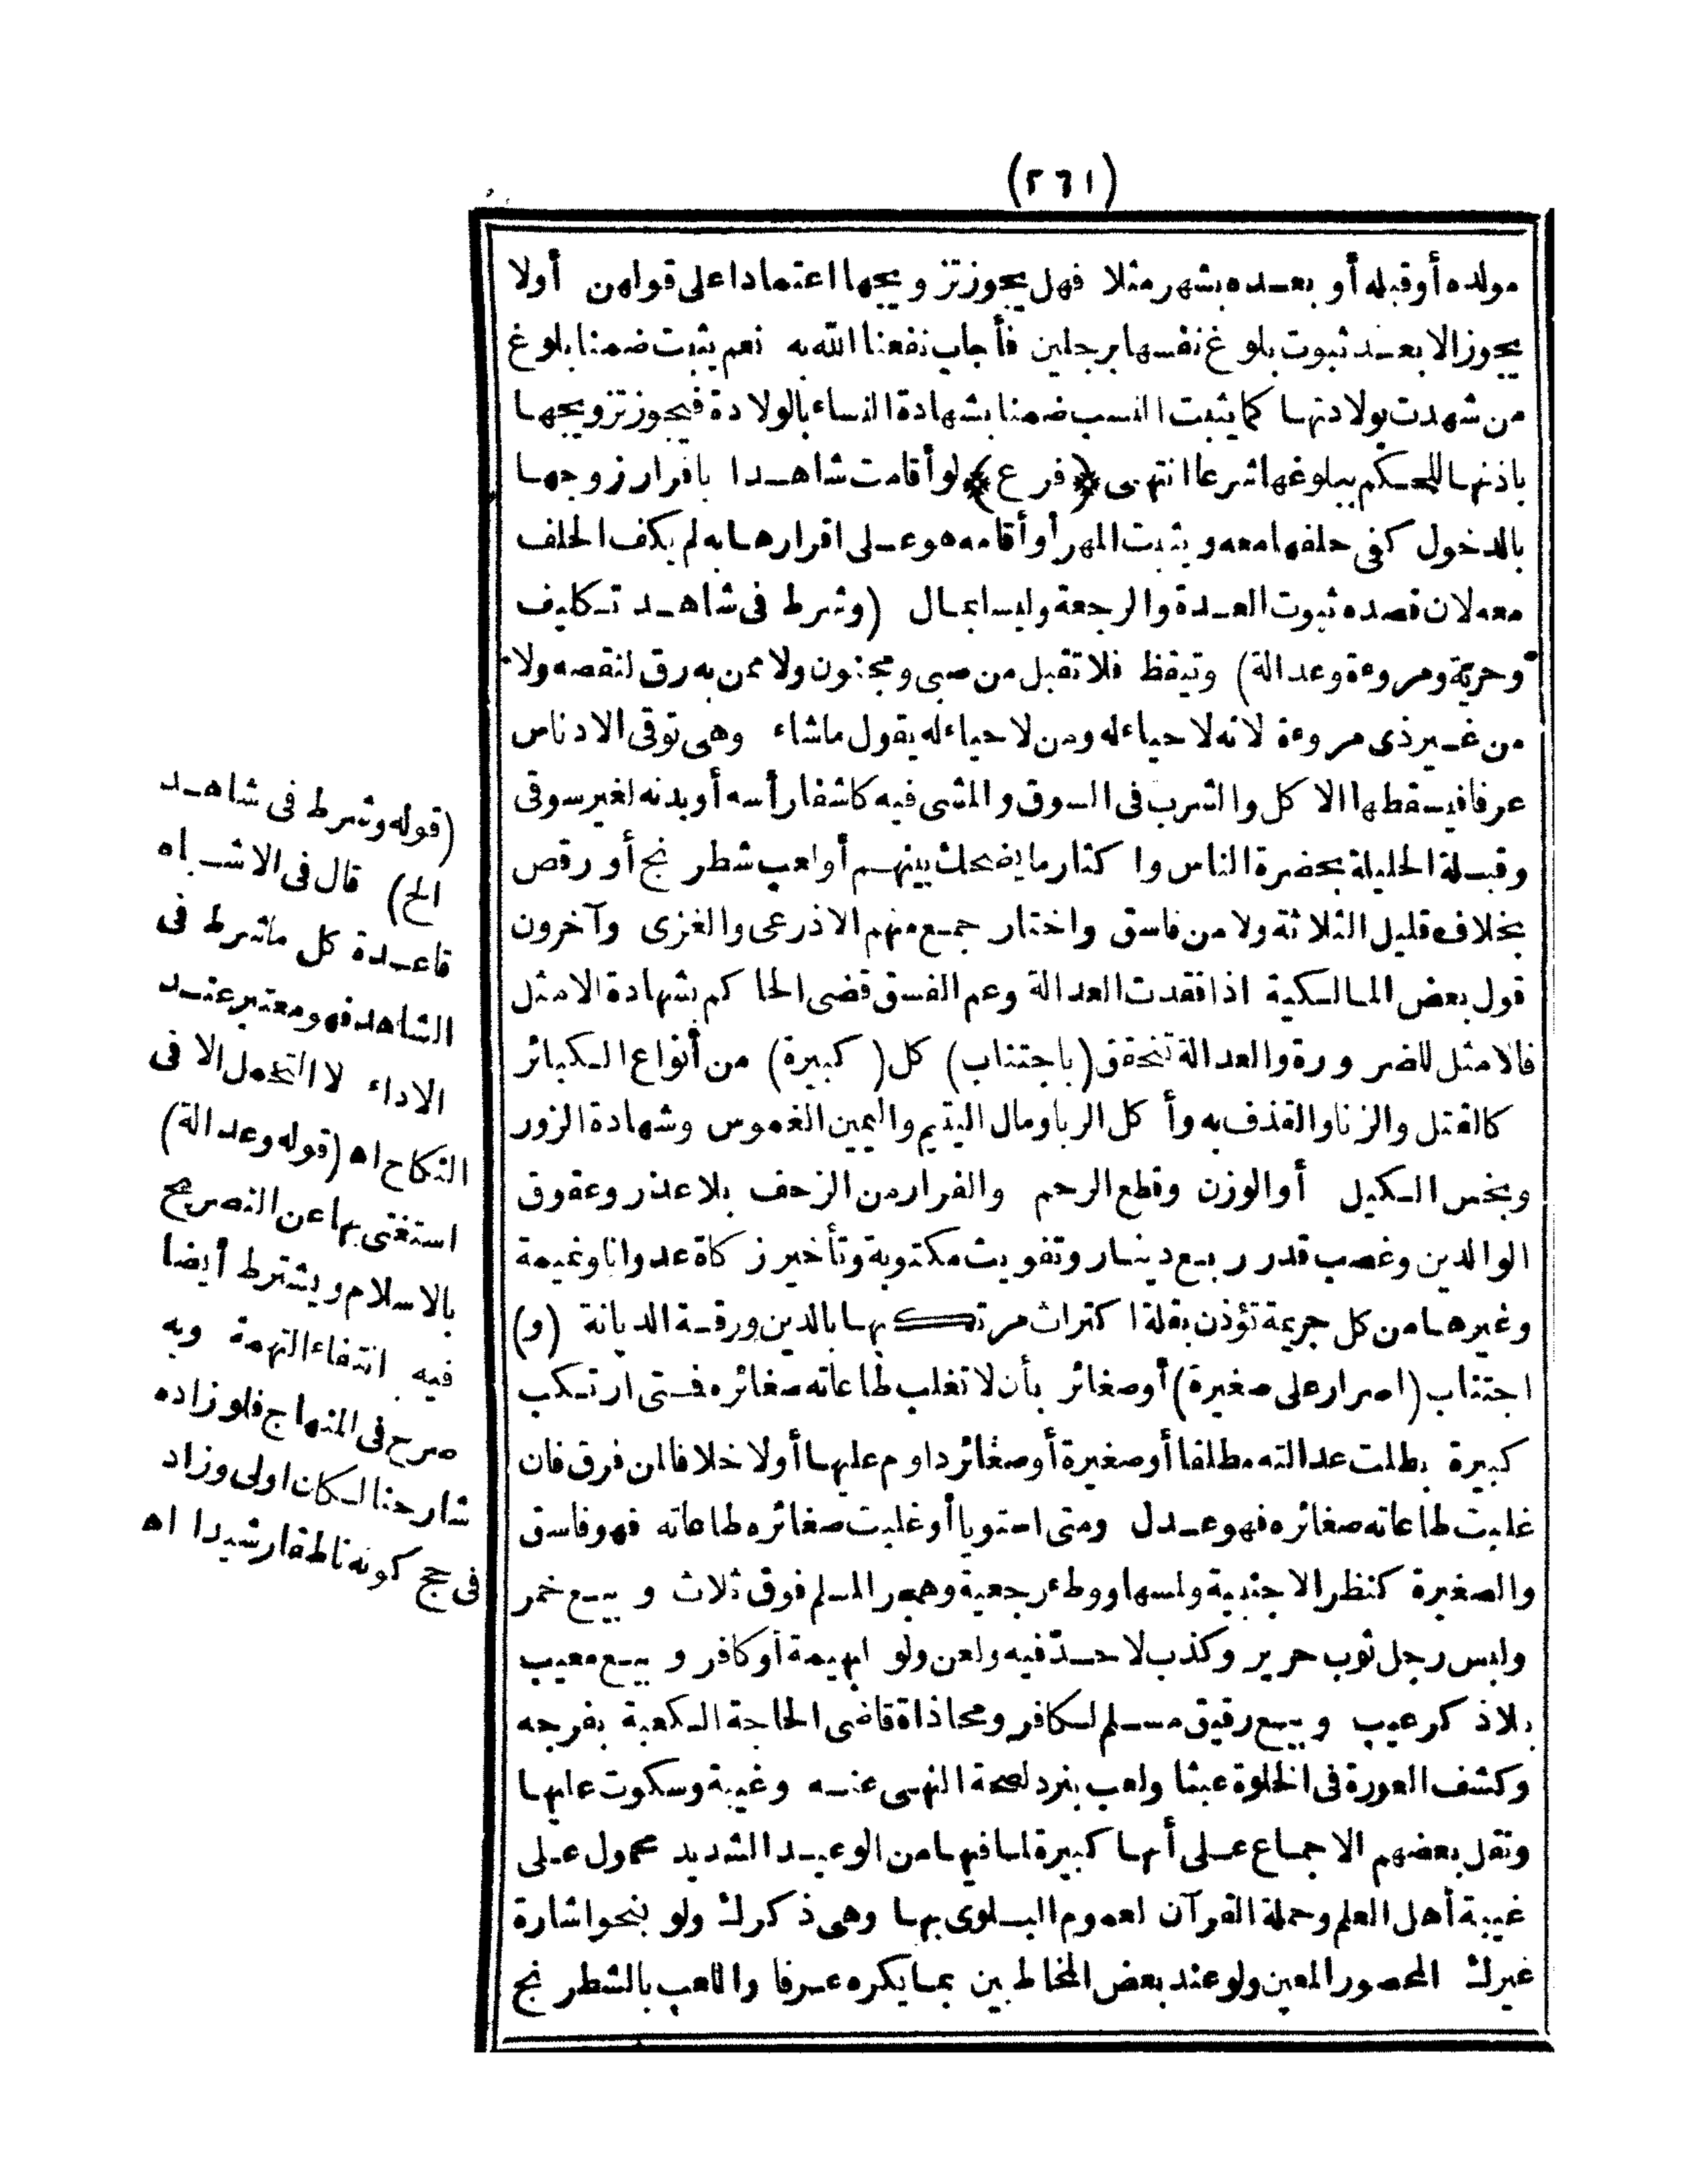 (٢٦١)
مولده أو قبله أو بعده بشهر مثلا فهل يجوز تزويجها اعتمادا على قولهن أولا
يجوز الا بعد ثبوت بلوغ نفسها برجلين فأجاب نفعنا الله به نعم يثبت ضمنا بلوغ
من شهدت بولادتها كما يثبت النسب ضمنا بشهادة النساء بالولادة فيجوز تزويجها
باذنها للحكم ببلوغها شرعا انتهى ﴿فرع﴾ لو أقامت شاهدا باقرار زوجها
بالدخول كفى حلفها معه ويثبت المهر أو أقامه هو على اقرارها به لم يكف الحلف
معه لان قصده ثبوت العدة والرجعة وليسا بمال (وشرط فى شاهد تكليف
وحرية ومروءة وعدالة) وتيقظ فلا تقبل من صبى ومجنون ولا ممن به رق لنقصه ولا
من غير ذى مروءة لانه لا حياء له ومن لا حياء له يقول ما شاء وهى توقى الادناس
عرفا فيسقطها الاكل والشرب فى السوق والمشى فيه كاشفا رأسه أو بدنه لغير سوقى
وقبلة الحليلة بحضرة الناس واكثار ما يضحك بينهم أو لعب شطرنج أو رقص
بخلاف قليل الثلاثة ولا من فاسق واختار جمع منهم الاذرعى والغزى وآخرون
قول بعض المالكية اذا فقدت العدالة وعم الفسق قضى الحاكم بشهادة الامثل
فالامثل للضرورة والعدالة تتحقق (باجتناب) كل (كبيرة) من أنواع الكبائر
كالقتل والزنا والقذف به وأكل الربا ومال اليتيم واليمين الغموس وشهادة الزور
وبخس الكيل أو الوزن وقطع الرحم والفرار من الزحف بلا عذر وعقوق
الوالدين وغصب قدر ربع دينار وتفويت مكتوبة وتأخير زكاة عدوانا ونميمة
وغيرها من كل جريمة تؤذن بقلة اكتراث مرتكبها بالدين ورقة الديانة (و)
اجتناب (اصرار على صغيرة) أو صغائر بأن لا تغلب طاعاته صغائره فمتى ارتكب
كبيرة بطلت عدالته مطلقا أو صغيرة أو صغائر داوم عليها أولا خلافا لمن فرق فان
غلبت طاعاته صغائره فهو عدل ومتى استويا أو غلبت صغائره طاعاته فهو فاسق
والصغيرة كنظر الاجنبية ولمسها ووطء رجعية وهجر المسلم فوق ثلاث وبيع خمر
ولبس رجل ثوب حرير وكذب لا حد فيه ولعن ولو لبهيمة أو كافر وبيع معيب
بلا ذكر عيب وبيع رقيق مسلم لكافر ومحاذاة قاضى الحاجة الكعبة بفرجه
وكشف العورة فى الخلوة عبثا ولعب بنرد لصحة النهى عنه وغيبة وسكوت عليها
ونقل بعضهم الاجماع على أنها كبيرة لما فيها من الوعيد الشديد محمول على
غيبة أهل العلم وحملة القرآن لعموم البلوى بها وهى ذكرك ولو بنحو اشارة
غيرك المحصور المعين ولو عند بعض المخاطبين بما يكره عرفا واللعب بالشطرنج
(قوله وشرط فى شاهد
الخ) قال فى الاشباه
قاعدة كل ما شرط فى
الشاهد فهو معتبر عند
الاداء لا التحمل الا فى
النكاح اه (قوله وعدالة)
استغنى بها عن التصريح
بالاسلام ويشترط أيضا
فيه انتفاء التهمة وبه
صرح فى المنهاج فلو زاده
شارحنا لكان اولى وزاد
فى حج كونه ناطقا رشيدا اه